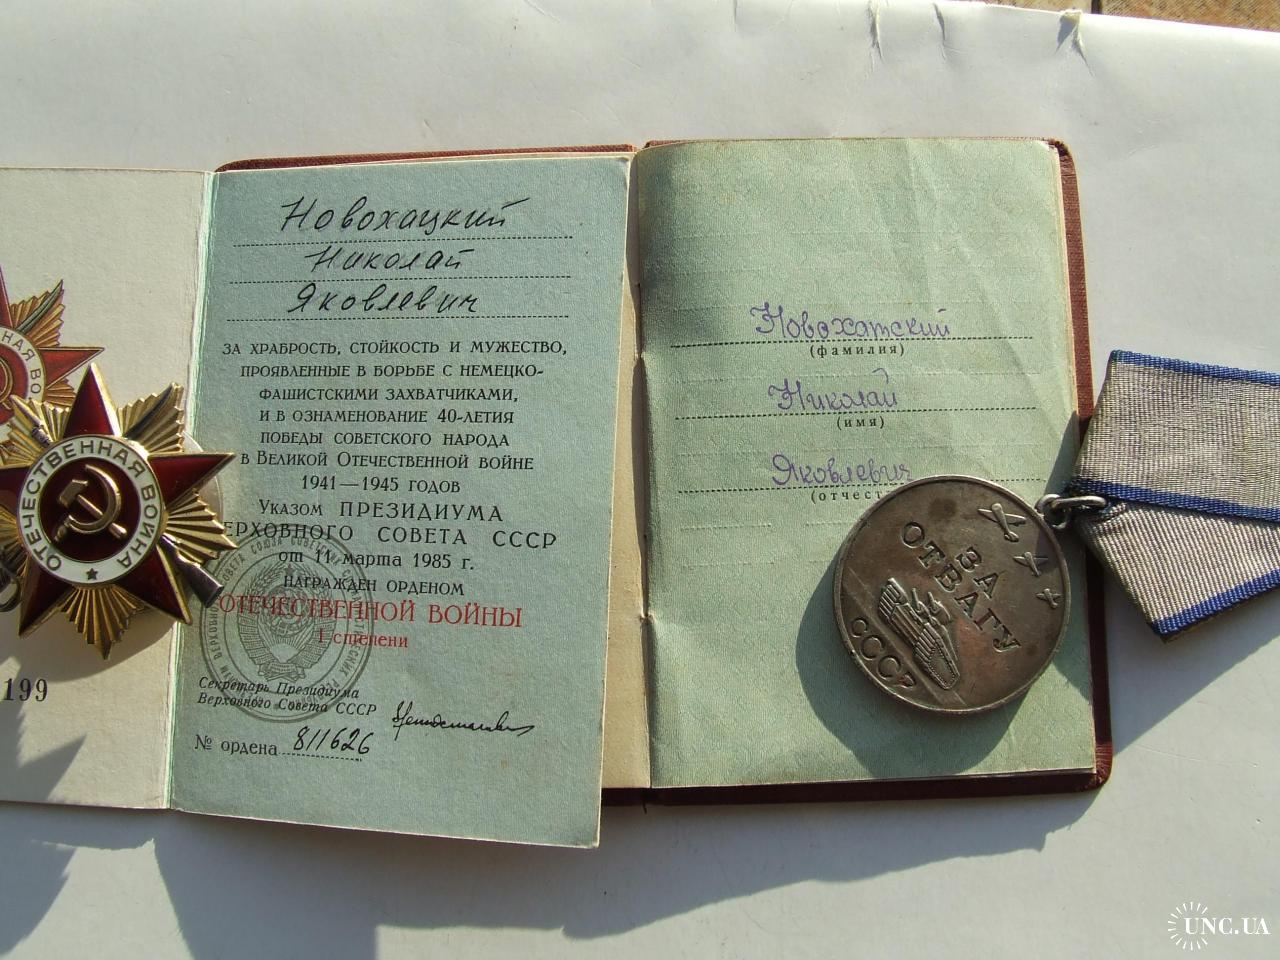 Новохацкий
Николай
Яковлевич
ЗА ХРАБРОСТЬ, СТОЙКОСТЬ И МУЖЕСТВО,
ПРОЯВЛЕННЫЕ В БОРЬБЕ С НЕМЕЦКО-
ФАШИСТСКИМИ ЗАХВАТЧИКАМИ,
И В ОЗНАМЕНОВАНИЕ 40-ЛЕТИЯ
ПОБЕДЫ СОВЕТСКОГО НАРОДА
В ВЕЛИКОЙ ОТЕЧЕСТВЕННОЙ ВОЙНЕ
1941—1945 ГОДОВ
УКАЗОМ ПРЕЗИДИУМА
ВЕРХОВНОГО СОВЕТА СССР
от 11 марта 1985 г.
НАГРАЖДЕН ОРДЕНОМ
ОТЕЧЕСТВЕННОЙ ВОЙНЫ
I степени
Секретарь Президиума
Верховного Совета СССР
№ ордена 811626
ОТЕЧЕСТВЕННАЯ ВОЙНА
199
Новохатский
(фамилия)
Николай
(имя)
Яковлевич
(отчест
ЗА
ОТВАГУ
СССР
UNC.UA